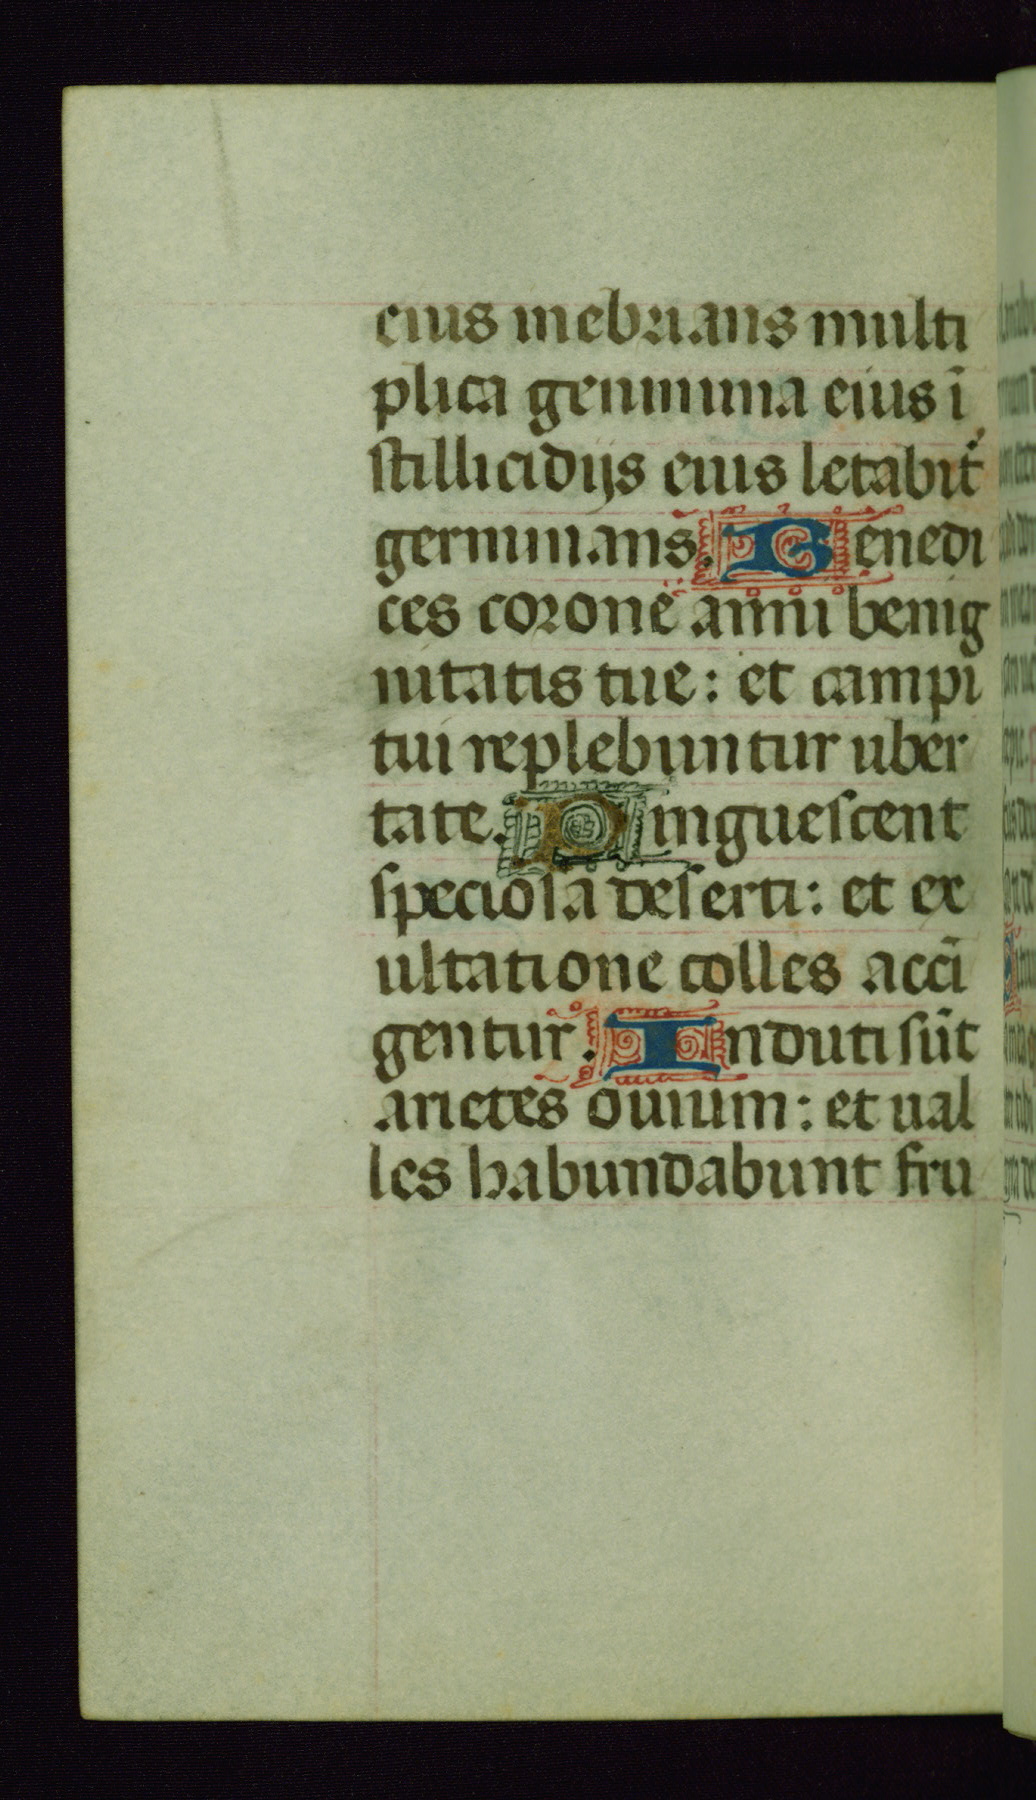 eius inebrians multi
plica genimina eius ī
stillicidijs eius letabit᷑
germinans. Benedi
ces corone anni benig
nitatis tue: et campi
tui replebuntur uber
tate. Pinguescent
speciosa deserti: et ex
ultatione colles acci
gentur. Induti sūt
arietes ouium: et ual
les habundabunt fru